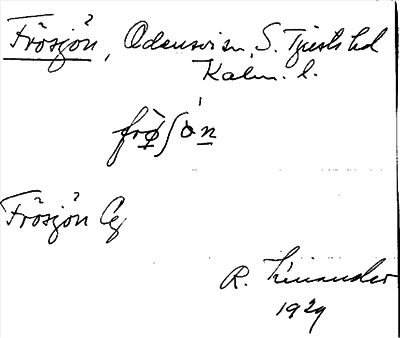 Frösjön, Odensvi sn, S. Tjusts hd
Kalm. l.
frø̀ʃòn
Frösjön Eg
R. Linander
1929